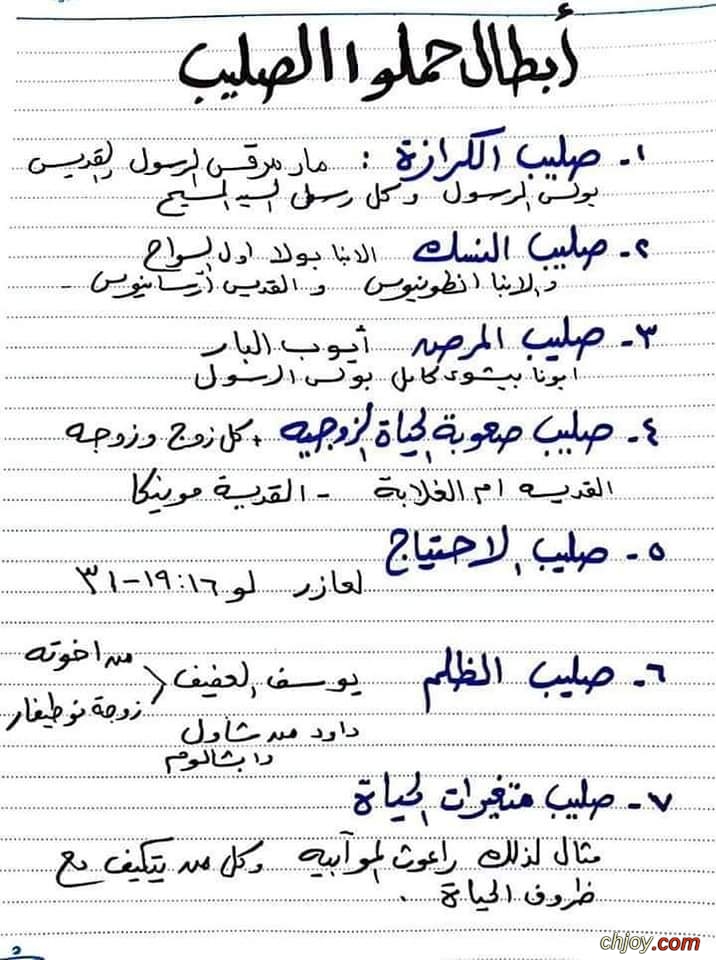 أبطال حملوا الصليب
١- صليب الكرازة : مار مرقس الرسول القديس
بولس الرسول وكل رسل السيد المسيح
٢- صليب النسك الانبا بولا اول السواح
والانبا انطونيوس والقديس أرسانيوس -
٣- صليب المرض أيوب البار
ابونا بيشوى كامل بولس الرسول
٤- صليب صعوبة الحياة الزوجيه + كل زوج وزوجه
القديسه ام الغلابة - القديسة مونيكا
٥- صليب الاحتياج
لعازر لو ١٦:١٩-٣١
٦- صليب الظلم يوسف العفيف من اخوته
زوجة فوطيفار
داود من شاول
وابشالوم
٧- صليب متغيرات الحياة
مثال لذلك راعوث الموآبيه وكل من يتكيف مع
ظروف الحياة .
chjoy.com